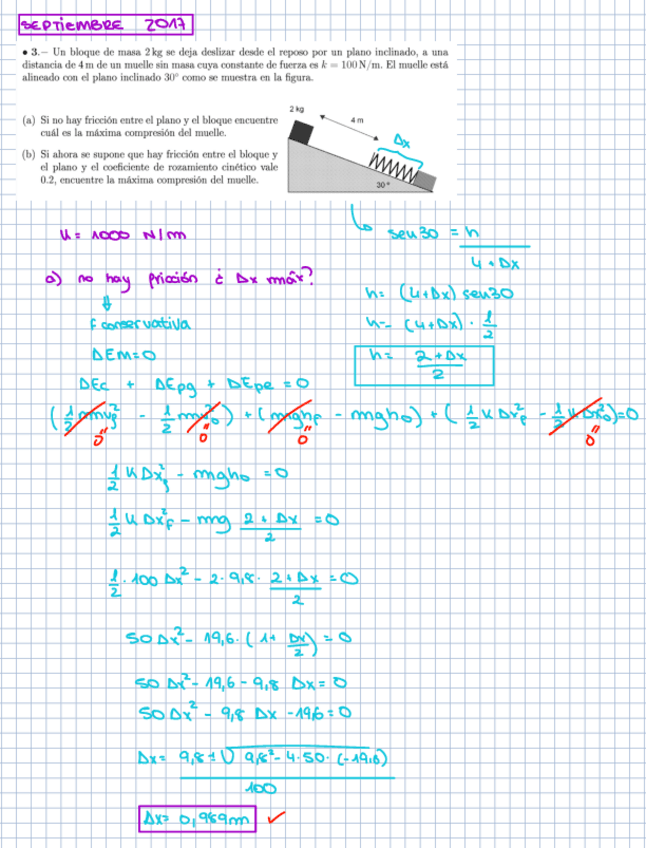 SEPTIEMBRE 2017
• 3.– Un bloque de masa 2 kg se deja deslizar desde el reposo por un plano inclinado, a una
distancia de 4 m de un muelle sin masa cuya constante de fuerza es k = 100 N/m. El muelle está
alineado con el plano inclinado 30° como se muestra en la figura.
(a) Si no hay fricción entre el plano y el bloque encuentre
cuál es la máxima compresión del muelle.
(b) Si ahora se supone que hay fricción entre el bloque y
el plano y el coeficiente de rozamiento cinético vale
0.2, encuentre la máxima compresión del muelle.
2 kg
4 m
Δx
30°
K = 1000 N/m
sen 30 = h / (4 + Δx)
a) no hay fricción ¿ Δx máx?
h = (4+Δx) sen 30
F conservativa
h = (4+Δx) · 1/2
ΔEM = 0
h = (2+Δx)/2
ΔEc + ΔEpg + ΔEpe = 0
(1/2 mv²f - 1/2 mv²0) + (mghf - mgh0) + (1/2 K Δx²f - 1/2 K Δx²0) = 0
0 0 0 0
1/2 K Δx²f - mgh0 = 0
1/2 K Δx²f - mg (2 + Δx)/2 = 0
1/2 · 100 Δx² - 2 · 9,8 · (2 + Δx)/2 = 0
50 Δx² - 19,6 · (1 + Δx/2) = 0
50 Δx² - 19,6 - 9,8 Δx = 0
50 Δx² - 9,8 Δx - 19,6 = 0
Δx = (9,8 ± √(9,8² - 4 · 50 · (-19,6)))/100
Δx = 0,989 m ✓